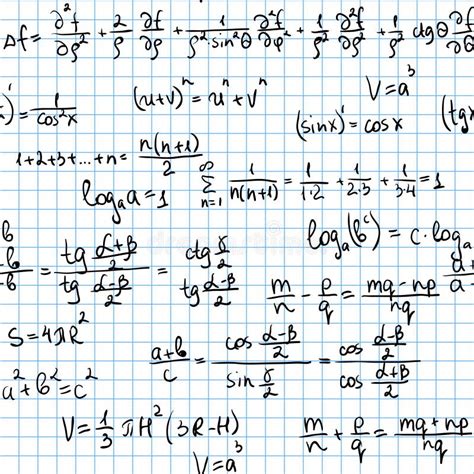 Δf = ∂²f/∂ρ² + 2/ρ ∂f/∂ρ + 1/(ρ² sin²Θ) ∂²f/∂φ² + 1/ρ² ∂²f/∂Θ² + 1/ρ² ctgΘ ∂f/∂Θ
V=a³
)' = 1/cos²x
(u+v)ⁿ = uⁿ + vⁿ
(sinx)' = cosx
(tgx
1+2+3+...+n = n(n+1)/2
∞ Σ n=1 1/n(n+1) = 1/1·2 + 1/2·3 + 1/3·4 = 1
logₐa=1
logₐ(bᶜ) = c·logₐ
= tg (α+β)/2 / tg (α-β)/2 = ctg γ/2 / tg (α-β)/2
m/n - p/q = (mq-np)/nq
S=4πR²
(a+b)/c = cos (α-β)/2 / sin γ/2 = cos (α-β)/2 / cos (α+β)/2
a²+b²=c²
V = 1/3 πH²(3R-H)
m/n + p/q = (mq+np)/nq
V=a³